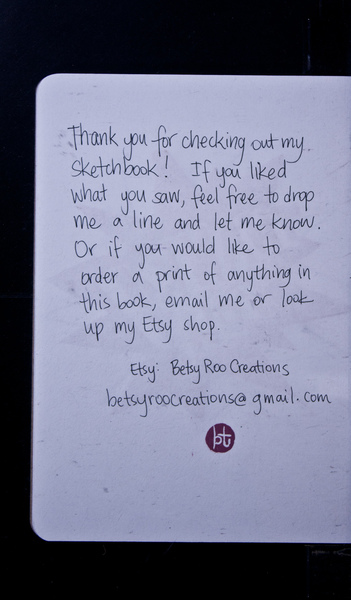 Thank you for checking out my
sketchbook! If you liked
what you saw, feel free to drop
me a line and let me know.
Or if you would like to
order a print of anything in
this book, email me or look
up my Etsy shop.
Etsy: Betsy Roo Creations
betsyroocreations@gmail.com
bt